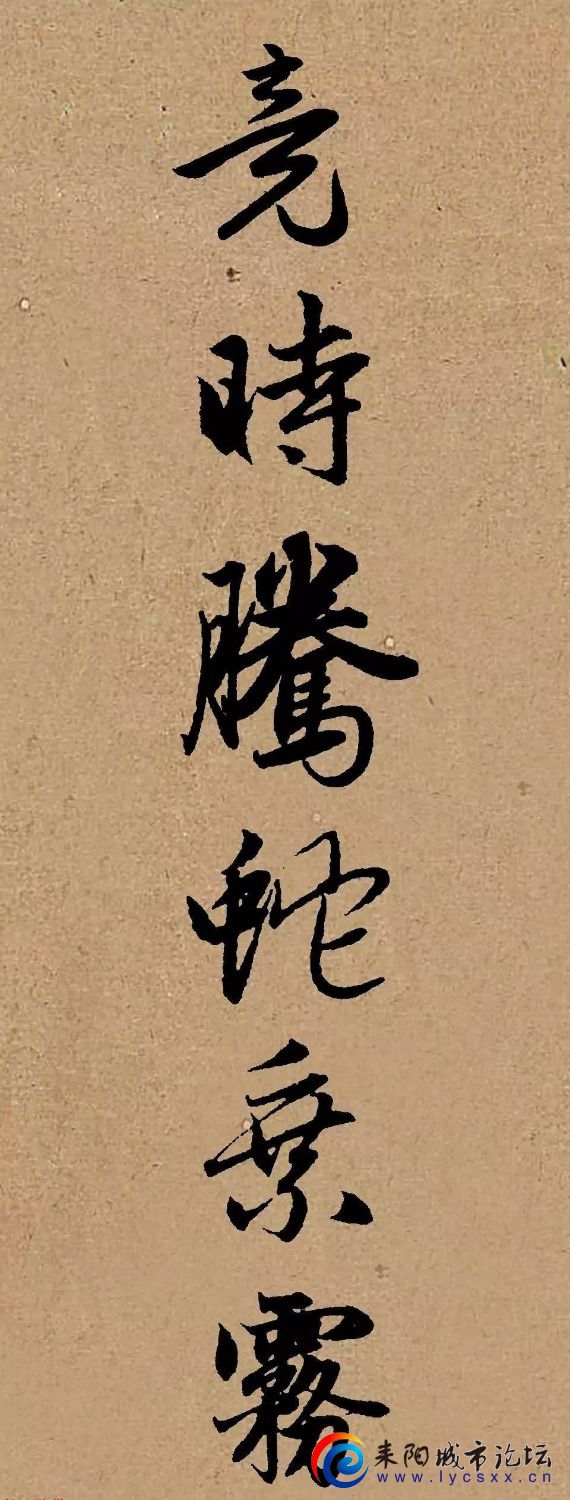 竟時騰蛇乗霧
耒阳城市论坛
www.lycsxx.cn